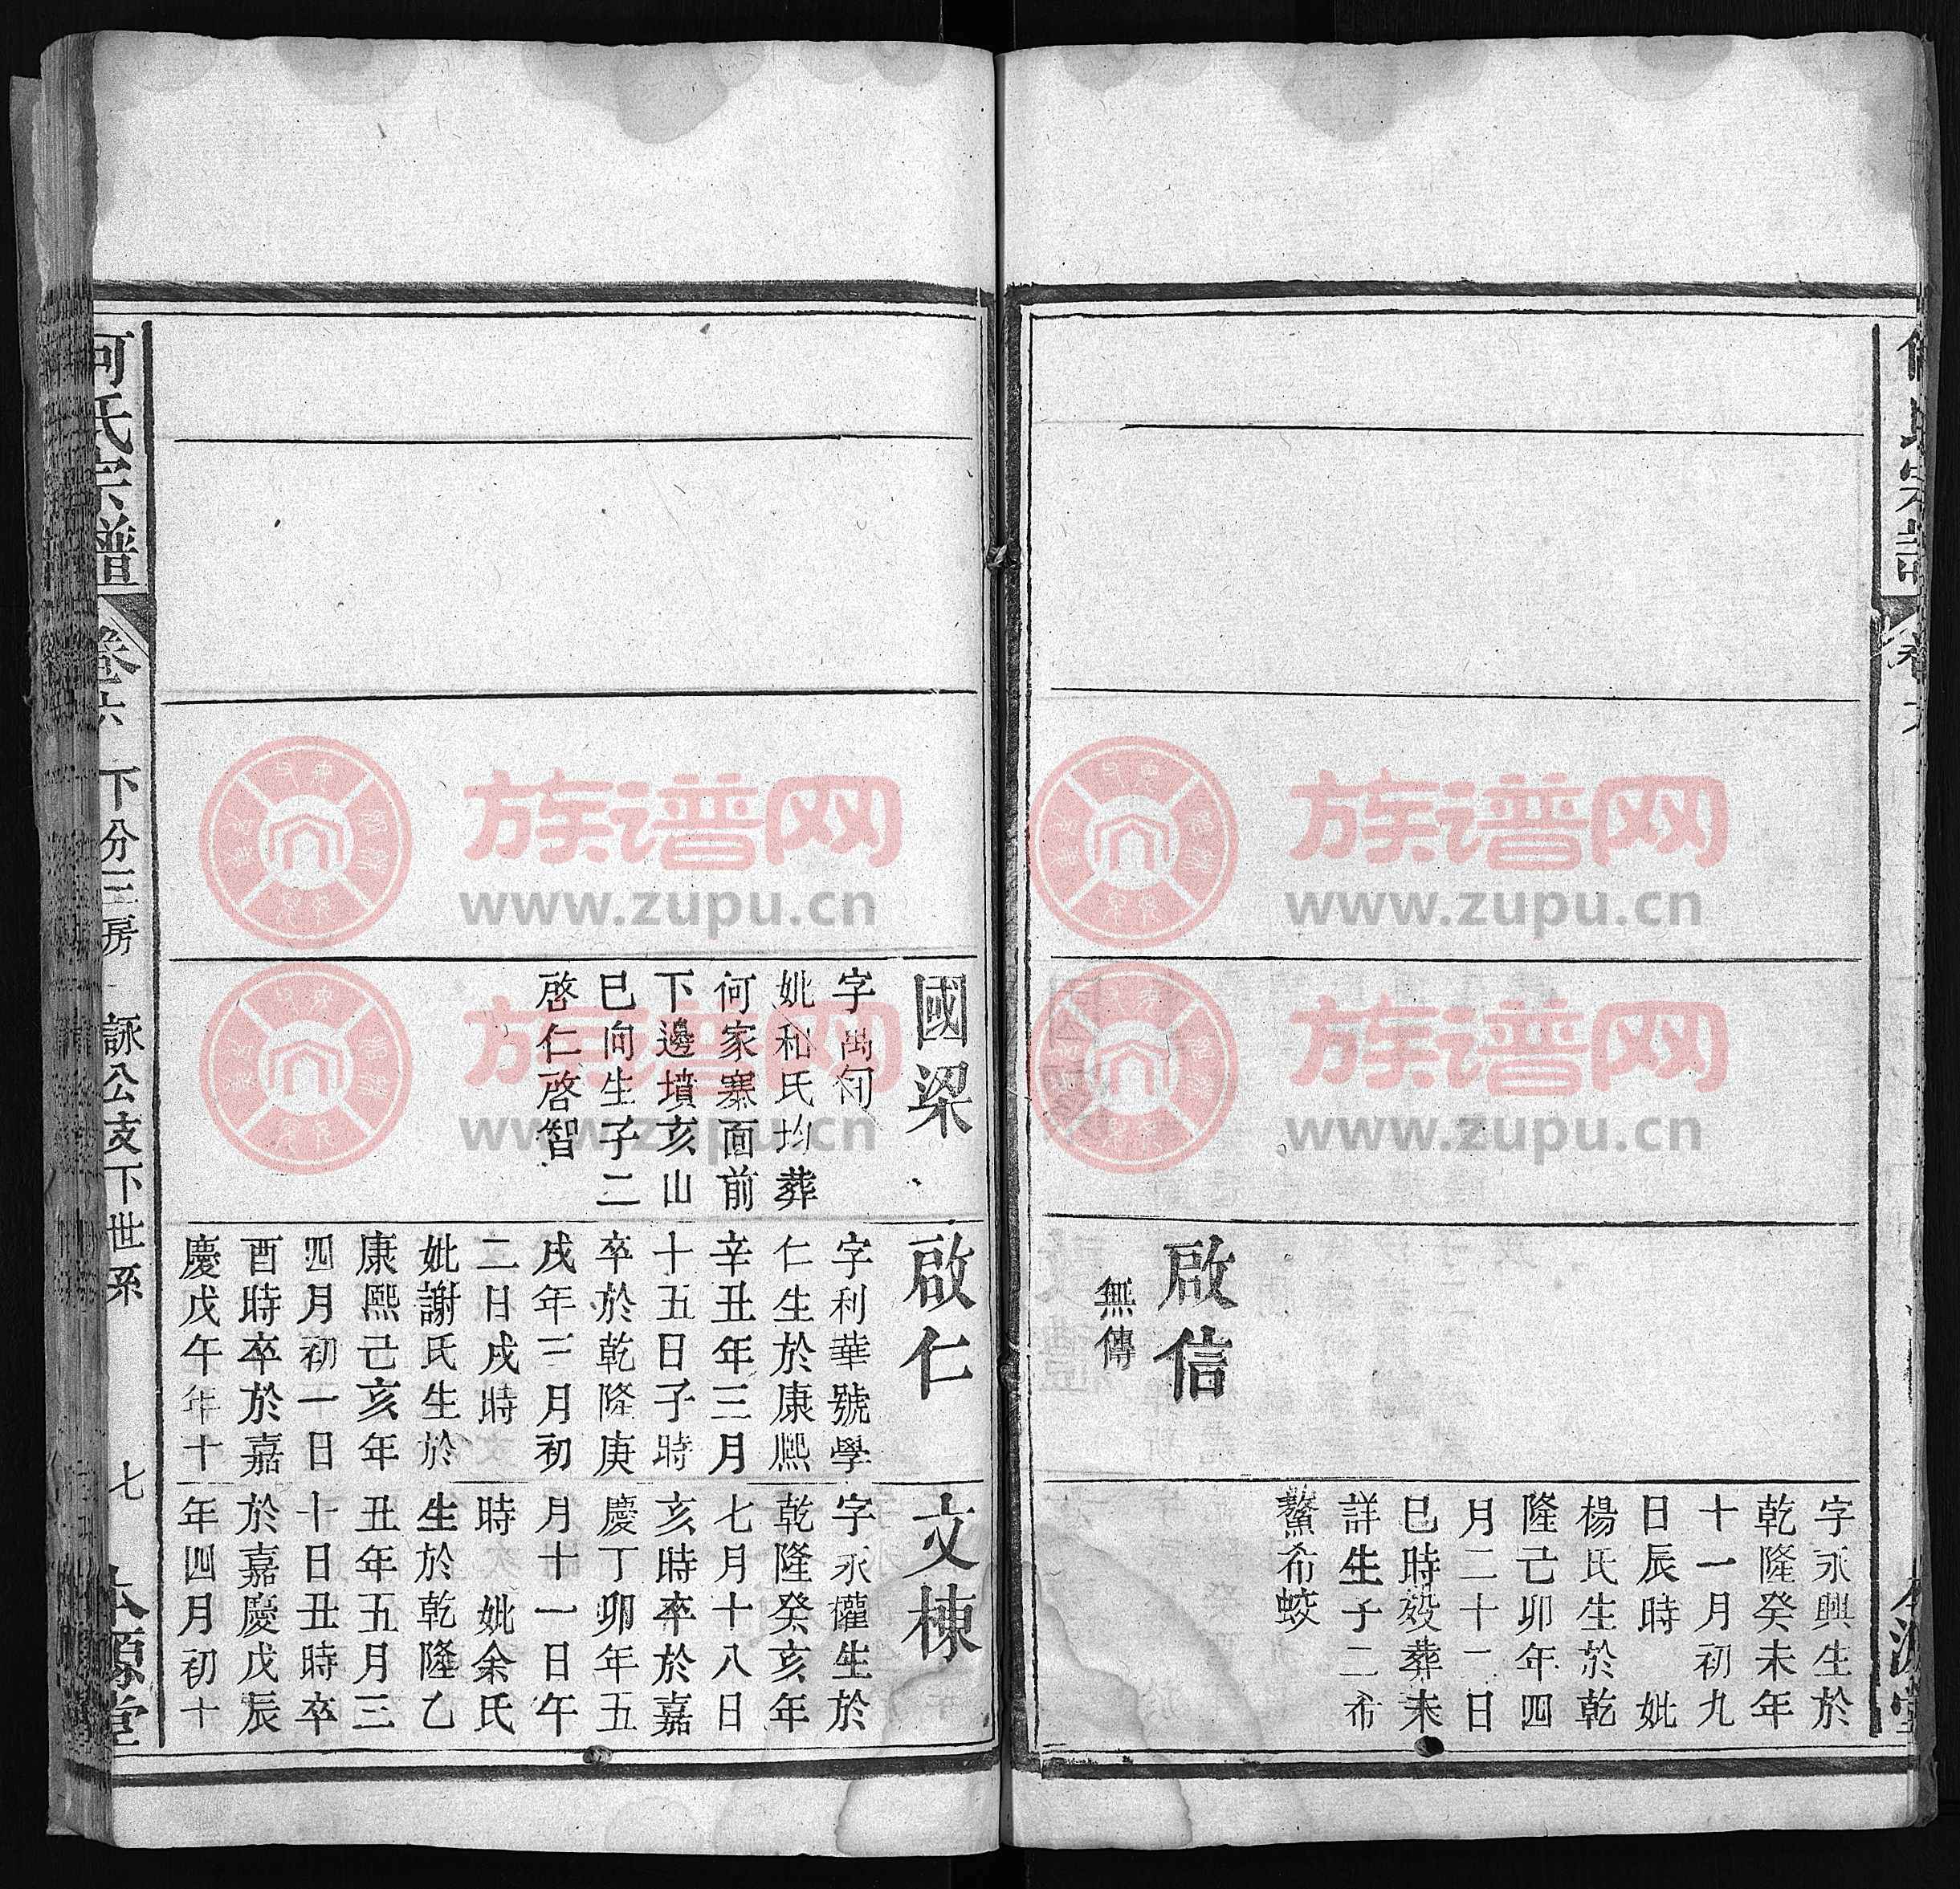 啟信
無傳
字永興生於
乾隆癸未年
十一月初九
日辰時 妣
楊氏生於乾
隆己卯年四
月二十二日
巳時歿葬未
詳生子二希
鰲希蛟
國梁
字萬
妣和氏均葬
何家寨面前
下邊墳亥山
巳向生子二
啓仁啓智
啟仁
字利華號學
仁生於康熙
辛丑年三月
十五日子時
卒於乾隆庚
戌年三月初
二日戌時
妣謝氏生於
康熙己亥年
四月初一日
酉時卒於嘉
慶戊午年十
文棟
字永權生於
乾隆癸亥年
七月十八日
亥時卒於嘉
慶丁卯年五
月十一日午
時 妣余氏
生於乾隆乙
丑年五月三
十日丑時卒
於嘉慶戊辰
年四月初十
何氏宗譜 卷六 下分三房 詠公支下世系 七 本源堂
族谱网
www.zupu.cn
族谱网
www.zupu.cn
族谱网
www.zupu.cn
族谱网
www.zupu.cn